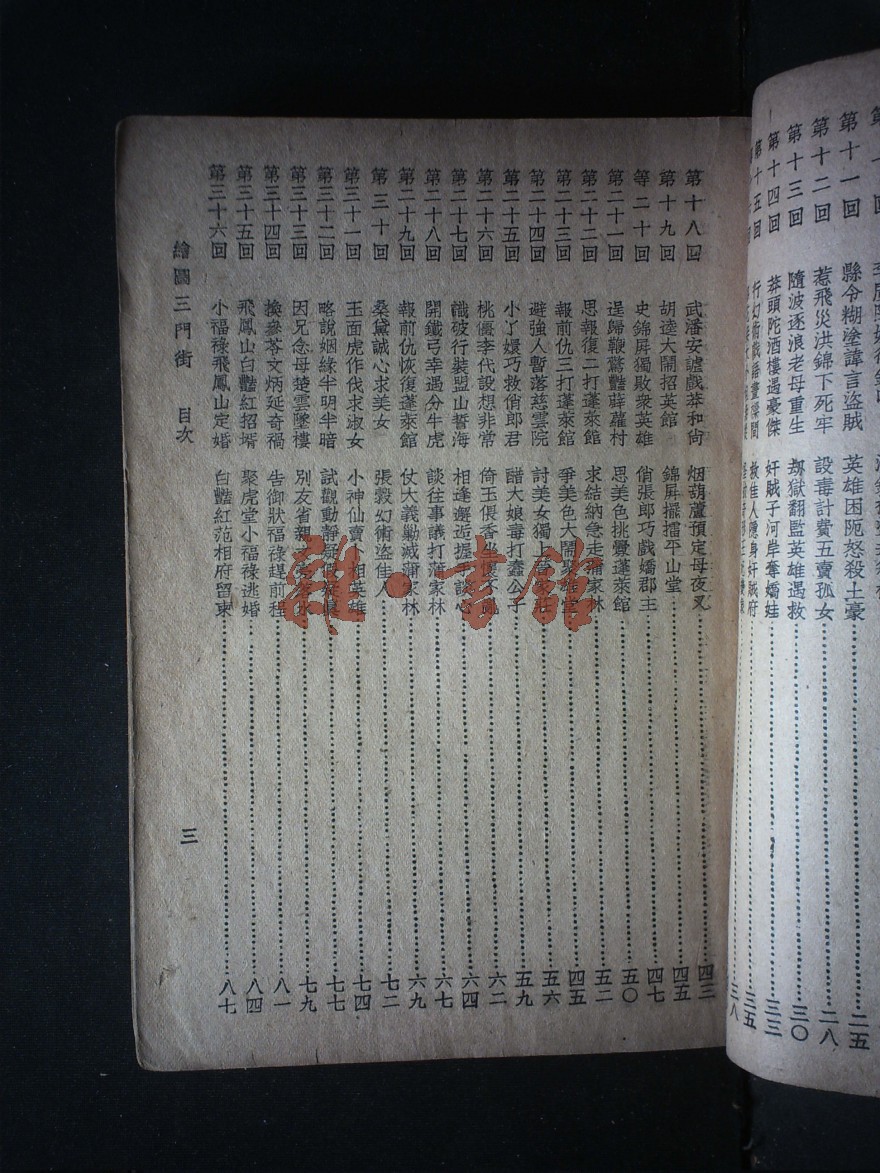 第十一回 縣令糊塗諱言盜賊 英雄困阨怒殺土豪 二五
第十二回 惹飛災洪錦下死牢 設毒計費五賣孤女 二八
第十三回 隨波逐浪老母重生 刼獄翻監英雄遇救 三〇
第十四回 莽頭陀酒樓遇豪傑 奸賊子河岸奪嬌娃 三三
第十五回 救佳人隱身奸賊府 三五
三八
第十八回 武潘安謔戲莽和尙 烟葫蘆預定母夜叉 四三
第十九回 胡逵大鬧招英館 錦屏擂擂平山堂 四五
第二十回 史錦屏獨敗衆英雄 俏張郎巧戲嬌郡主 四七
第二十一回 逞歸鞭驚豔薜蘿村 思美色挑釁蓬萊館 五〇
第二十二回 思報復二打蓬萊館 求結納急走蒲家林 五二
第二十三回 報前仇三打蓬萊館 爭美色大鬧聚雄堂 四五
第二十四回 避強人暫落慈雲院 討美女獨上曹家莊 五六
第二十五回 小丫嬛巧救俏郎君 醋大娘毒打蠢公子 五九
第二十六回 桃僵李代設想非常 倚玉偎香坐懷不亂 六二
第二十七回 識破行裝盟山誓海 相逢邂逅握手談心 六四
第二十八回 開鐵弓幸遇分牛虎 談往事議打蒲家林 六七
第二十九回 報前仇恢復蓬萊館 仗大義勦滅蒲家林 六九
第三十回 桑黛誠心求美女 張轂幻術盜佳人 七二
第三十一回 玉面虎作伐求淑女 小神仙賣卜相英雄 七四
第三十二回 略說姻緣半明半暗 試觀動靜疑假疑眞 七七
第三十三回 因兄念母楚雲墜樓 別友省親 七九
第三十四回 換參苓文炳延奇禍 告御狀福祿趕前程 八一
第三十五回 飛鳳山白豔紅招壻 聚虎堂小福祿逃婚 八四
第三十六回 小福祿飛鳳山定婚 白豔紅范相府留柬 八七
繪圖三門街 目次
三
雜·書館